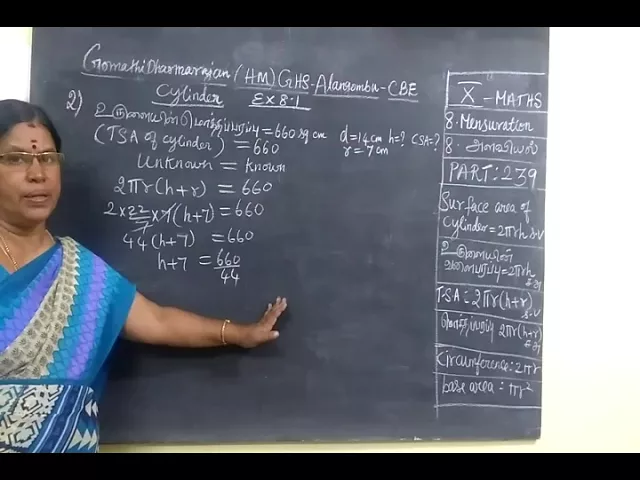 Gomathi Dharmarajan (HM) GHS-Alangombu-CBE
Cylinder EX 8.1
2) உருளையின் மொத்தப்பரப்பு = 660 sq cm
(TSA of cylinder) = 660
d=14 cm h=? CSA=?
r = 7 cm
Unknown = known
2πr(h+r) = 660
2 × 22/7 × 7 (h+7) = 660
44 (h+7) = 660
h+7 = 660/44
X - MATHS
8. Mensuration
8. அளவியல்
PART: 239
Surface area of
Cylinder = 2πrh s.v
உருளையின்
வளைபரப்பு = 2πrh
ச.அ
TSA = 2πr(h+r)
s.v
மொத்தப்பரப்பு 2πr(h+r)
ச.அ
Circumference: 2πr
base area = πr²